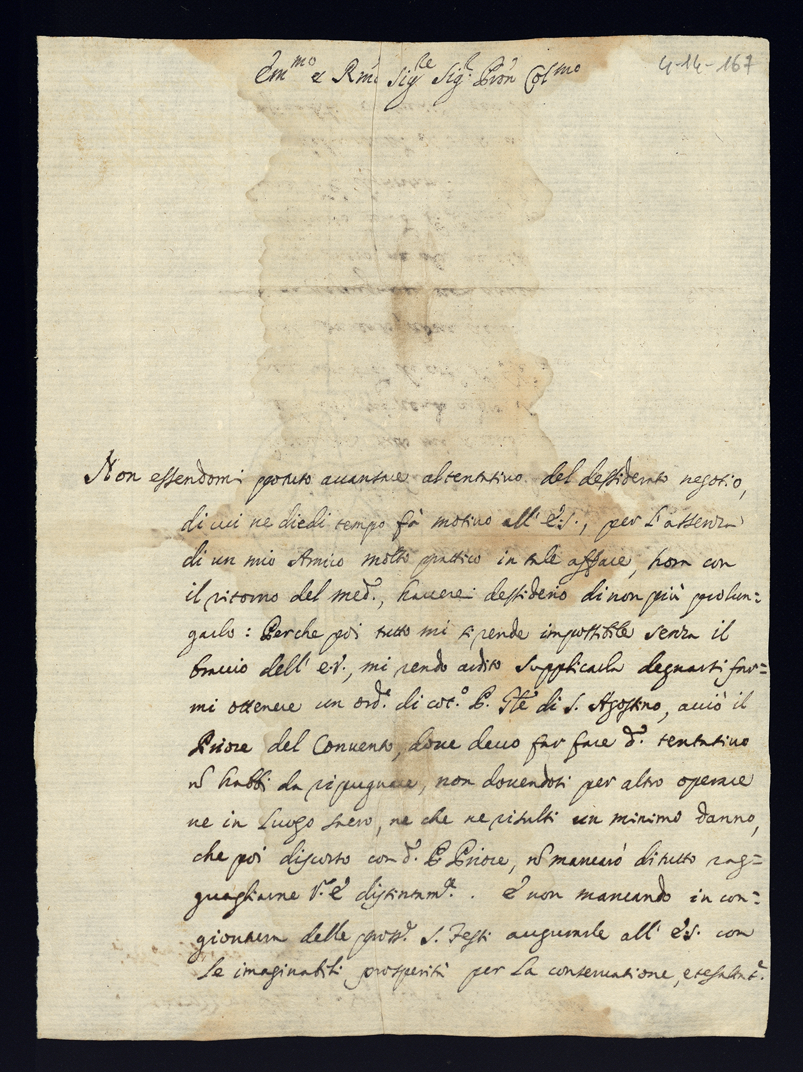 Em^mo e R^mo Sig^re Sig^r Pron Col^mo
4-14-167
Non essendomi potuto avantare al tentativo del dessiderato negotio,
di cui ne diedi tempo fà motivo all' E.S., per l'assenza
di un mio Amico molto prattico in tale affare, hora con
il ritorno del med.°, haverei dessiderio di non più prolun=
garlo: Perche poi tutto mi si rende impossibile senza il
braccio dell' E.V., mi rendo ardito supplicarla degnarsi far=
mi ottenere un ord.e di cot.° P. Gñle di S. Agostino, acciò il
Priore del Convento, dove devo far fare d.° tentativo
ñ habbi da ripugnare, non dovendosi per altro operare
ne in Luogo sacro, ne che ne risulti un minimo danno,
che poi discorso con d.° P. Priore, ñ mancarò di tutto rag=
guagliarne V.E. distintam.te. E non mancando in con=
giontura delle pross.e S. Feste augurarle all' E.S. con
le imaginabili prosperità per la conservatione, et esaltat.e